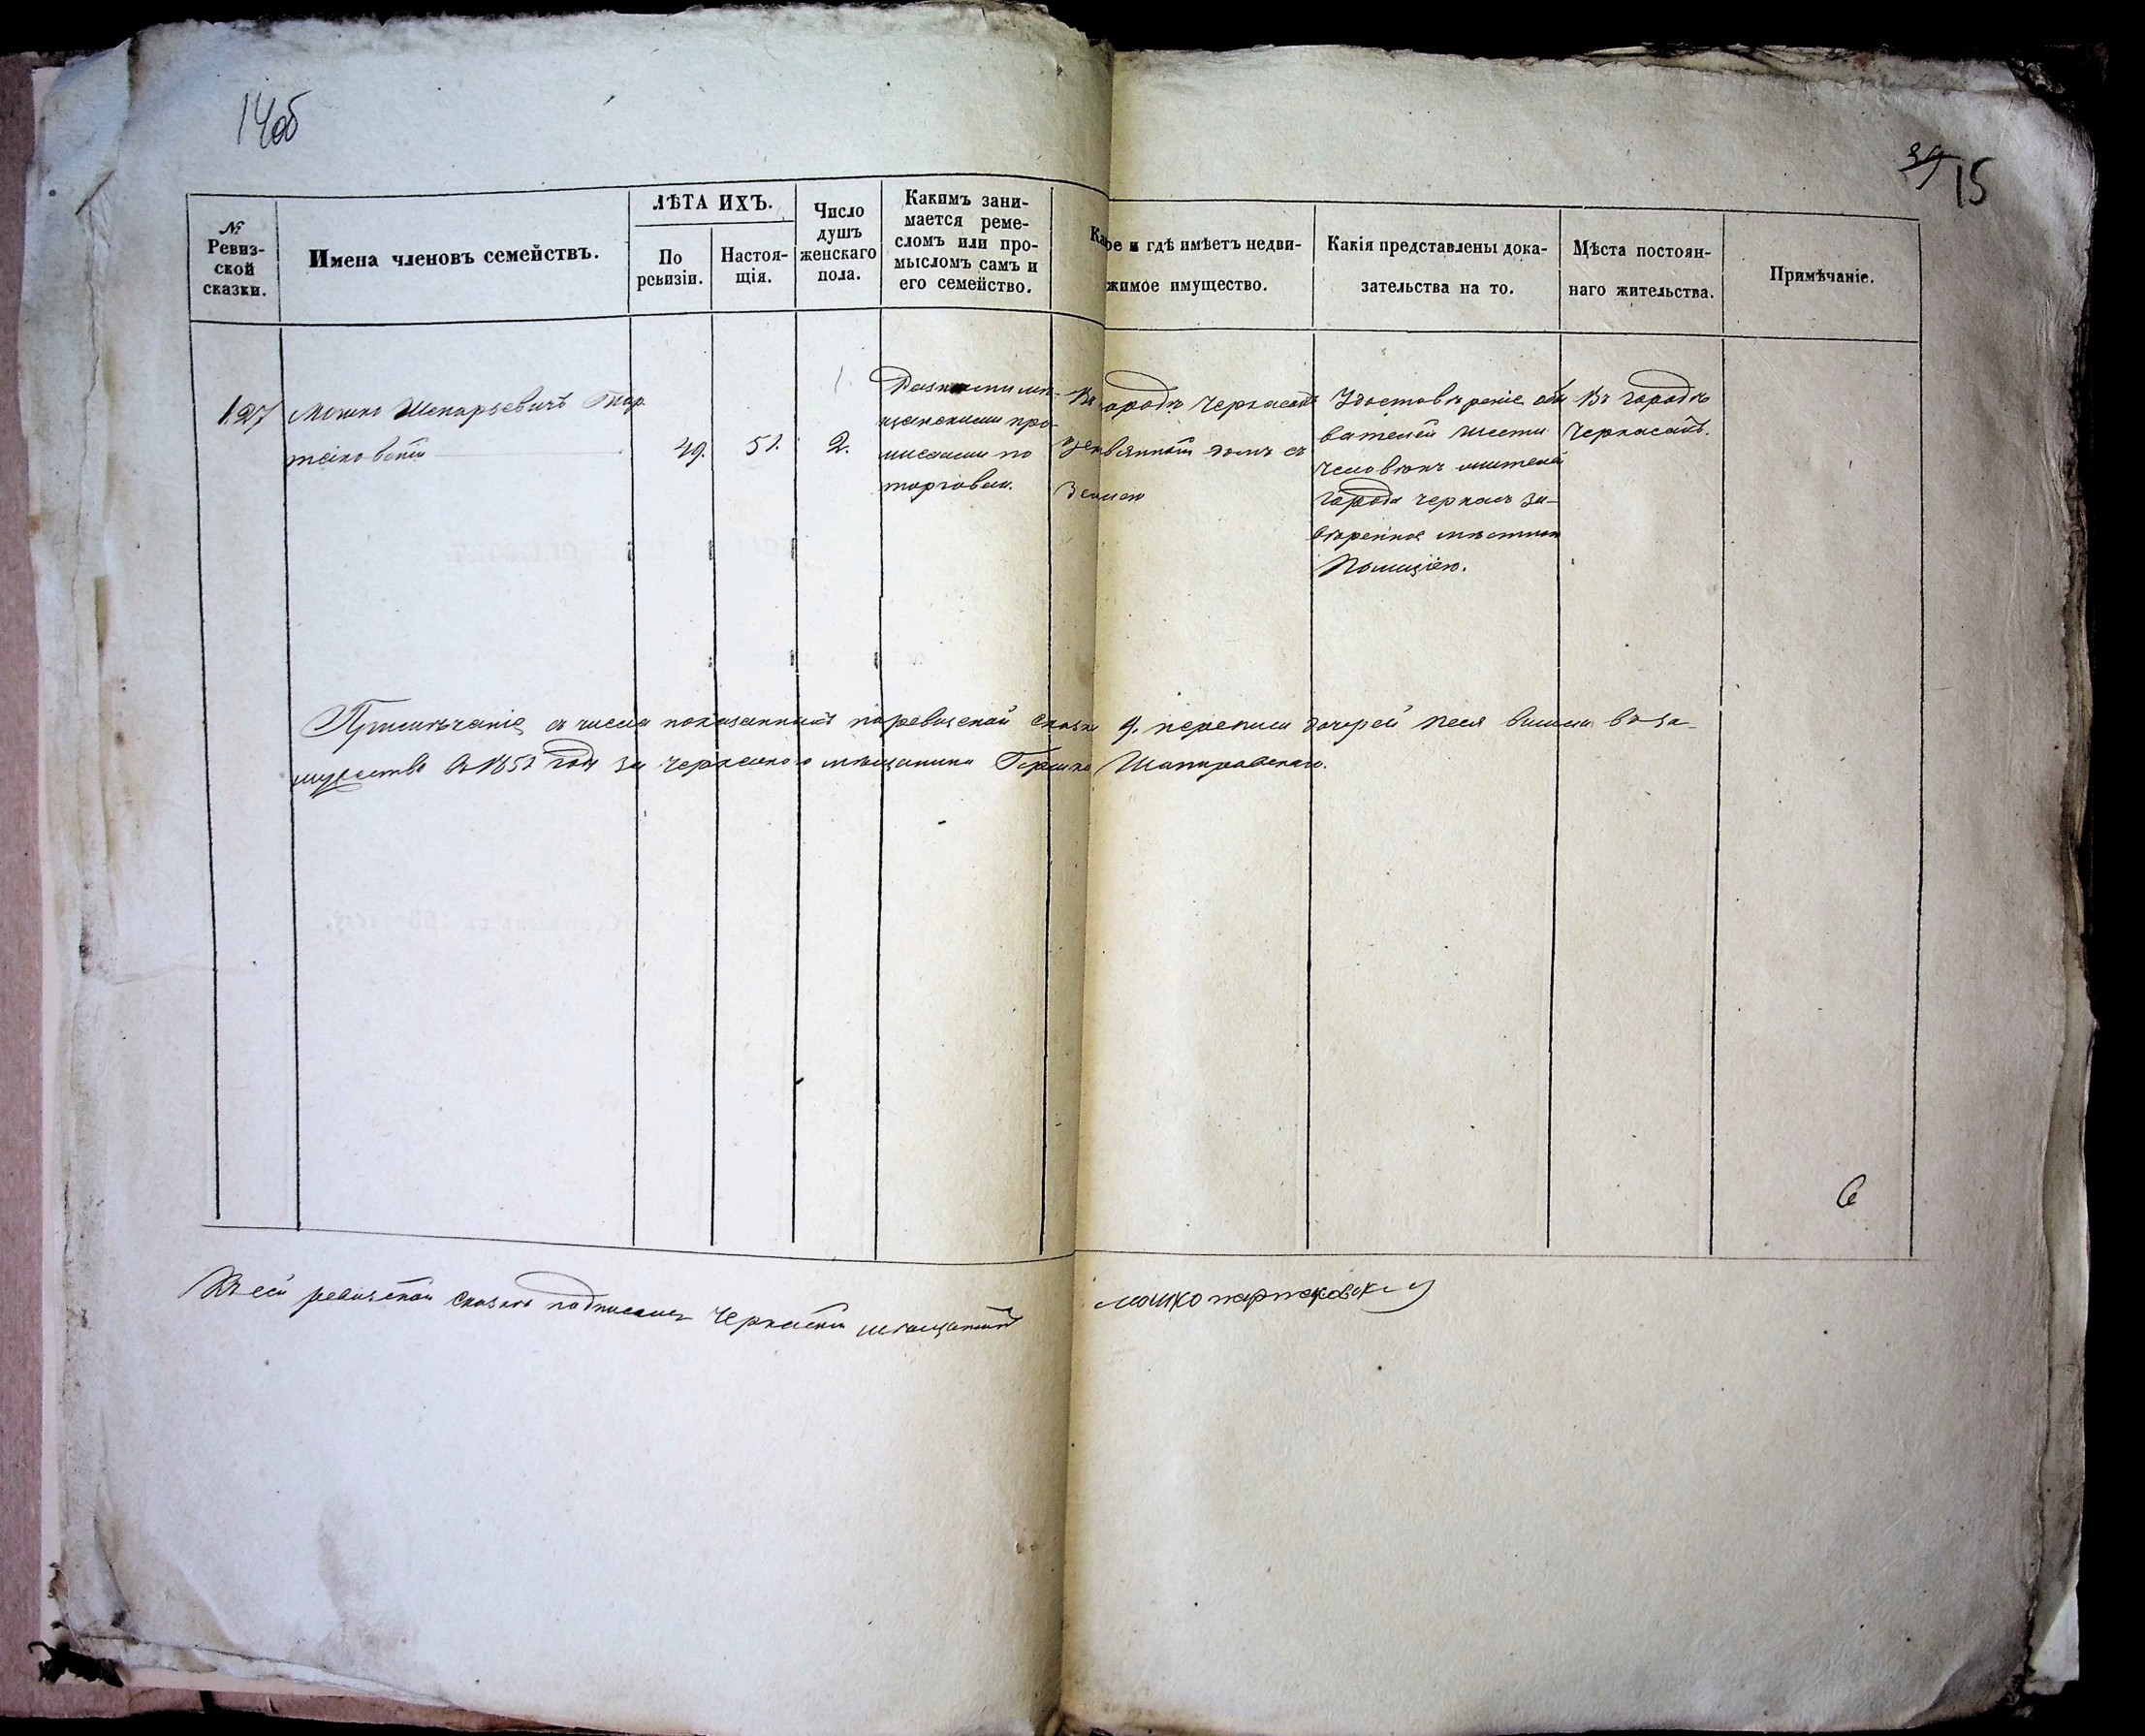 14об
39 15
№ Ревиз-ской сказки.
Имена членовъ семействъ.
ЛѢТА ИХЪ.
По ревизіи.
Настоя-щія.
Число душъ женскаго пола.
Какимъ зани-мается реме-сломъ или про-мысломъ самъ и его семейство.
Какое и гдѣ имѣетъ недви-жимое имущество.
Какія представлены дока-зательства на то.
Мѣста постоян-наго жительства.
Примѣчаніе.
127
Мошко
49.
51.
1.
2.
мѣ-
щанскими про-
мислами по
торговли.
Въ городѣ Черкасахъ
деревянный домъ съ
Землею
Удостовѣреніе обы
вателей шести
человѣкъ жителей
города Черкасъ за-
вѣренное мѣстною
Полиціею.
Въ городѣ
Черкасахъ.
Примѣчаніе, съ числа показанныхъ по ревизской сказки 9. переписи дочерей Песя вишла въ за-
мужество въ 1851 году за Черкаского мѣщанина Гершка
6
Къ сей ревизской сказкѣ подписался Черкаский мѣщанинъ
мошко